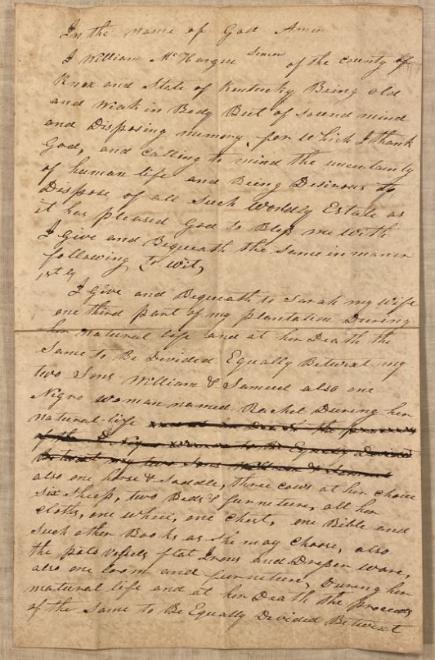 In the name of God Amen
I William McHargue Senior of the county of
Knox and State of Kentucky Being old
and Weak in Body But of Sound mind
and Disposing memory, for which I thank
God, and calling to mind the uncertainty
of human life and Being Desirous to
Dispose of all Such Worldly Estate as
it has pleased God to Bless me with
I give and Bequeath the Same in maner
following, to wit,
1st ly
I Give and Bequeath to Sarah my Wife
one third part of my plantation During
her natural life and at her Death the
Same to Be Divided Equally Betwixt my
two Sons William & Samuel also one
Negro woman named Rachel During her
natural life
also one horse & Saddle, three cows at her choice
Six Sheep, two Beds & furniture, all her
cloths, one wheel, one Chest, one Bible and
Such other Books as She may choose, also
the pots vessels flat Irons and Dresser ware,
also one loom and furniture, During her
natural life and at her Death the proceeds
of the Same to Be Equally Divided Betwixt